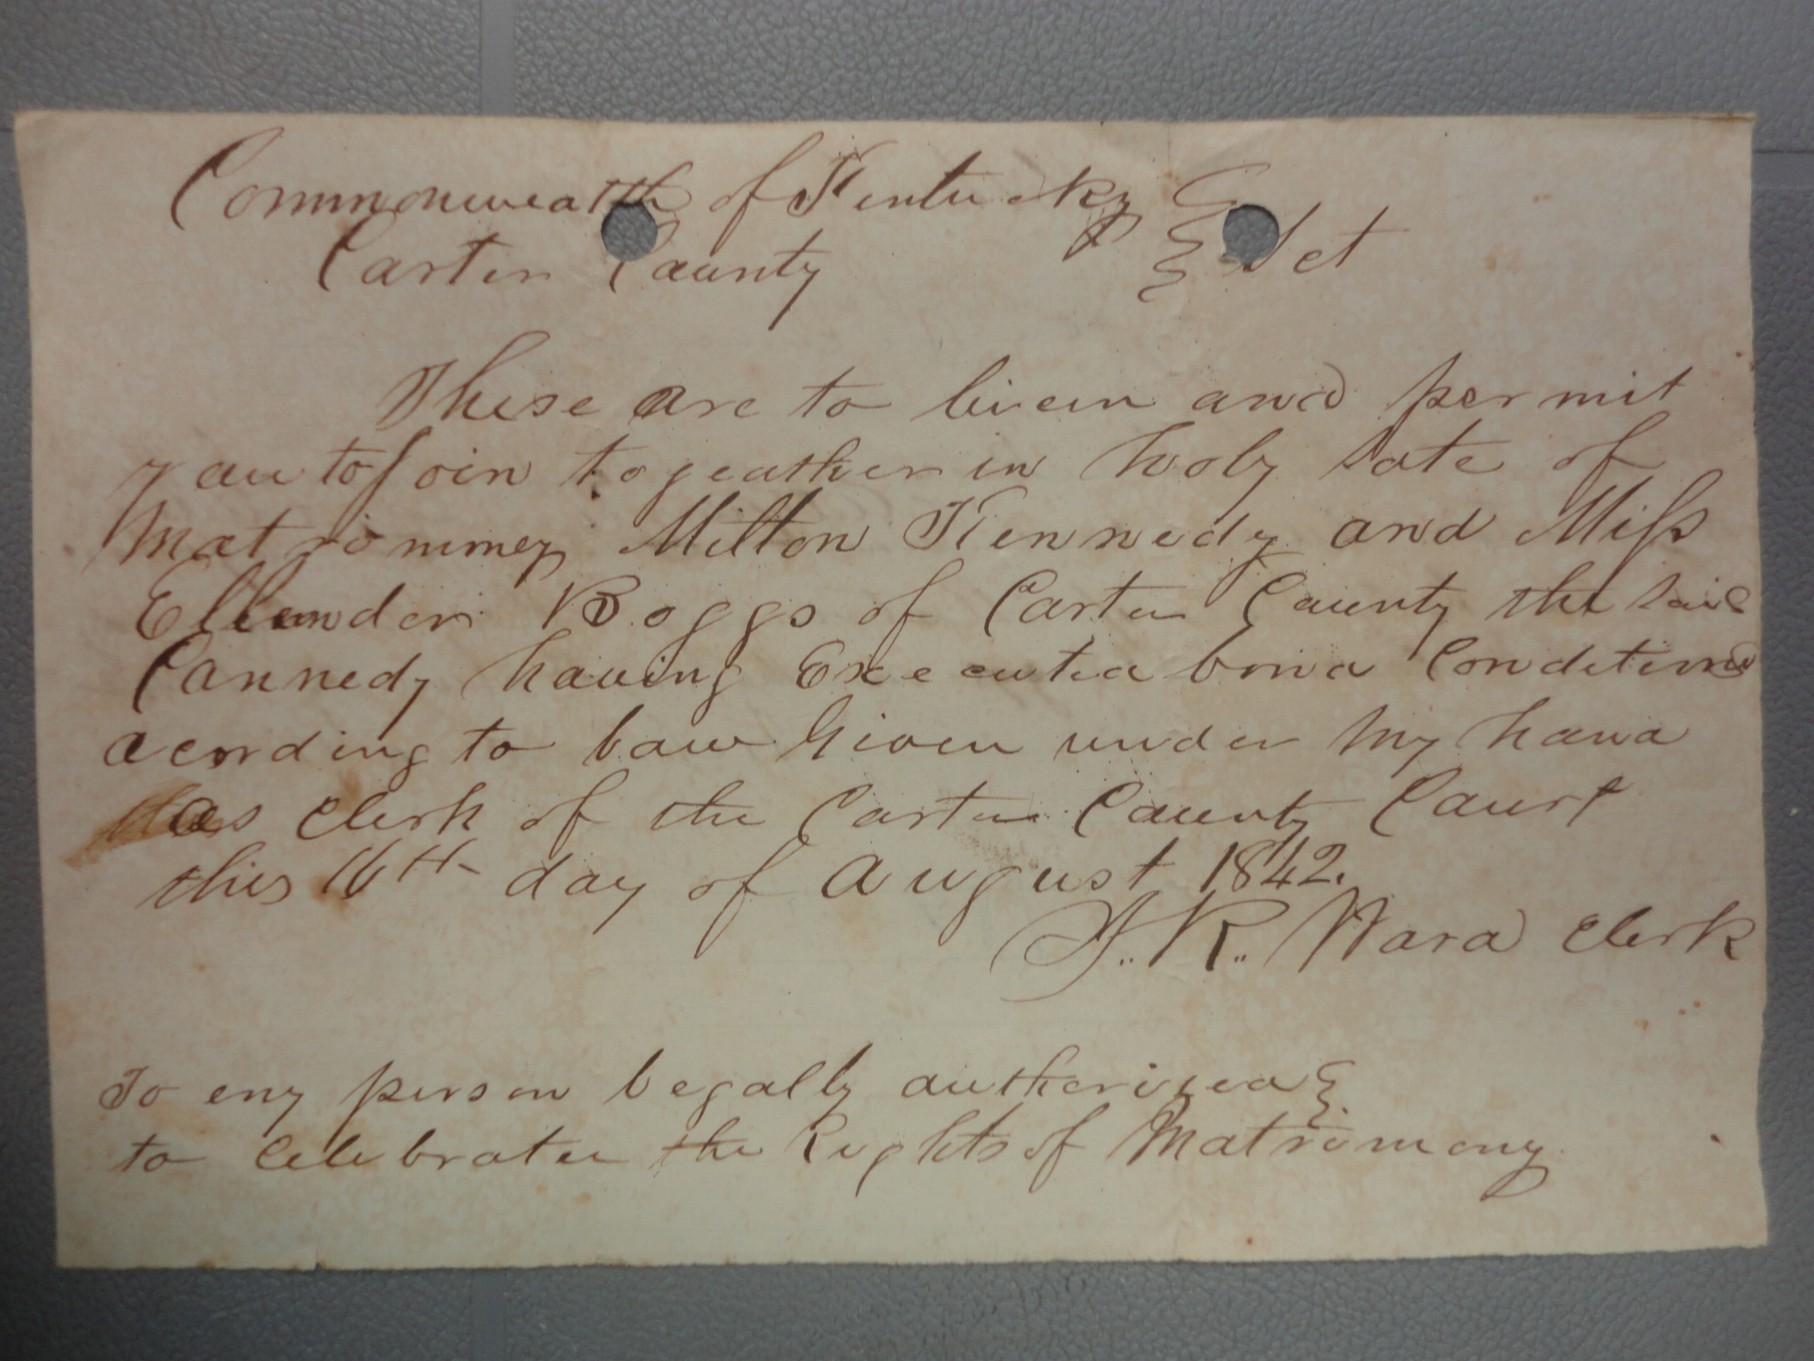 Commonweath of Kentucky } Sct
Carter County
These are to licien and permit
you to Join togeather in holy sate of
Matrimmey Milton Kennedy and Miss
Ellender Boggs of Carter County the said
Cannedy having Executed bond Conditiond
acording to Law Given under My hand
as Clerk of the Carter County Court
this 16th day of August 1842.
R. Ward Clerk
To eny person Legally autherized }
to Celebrater the Rights of Matrimony